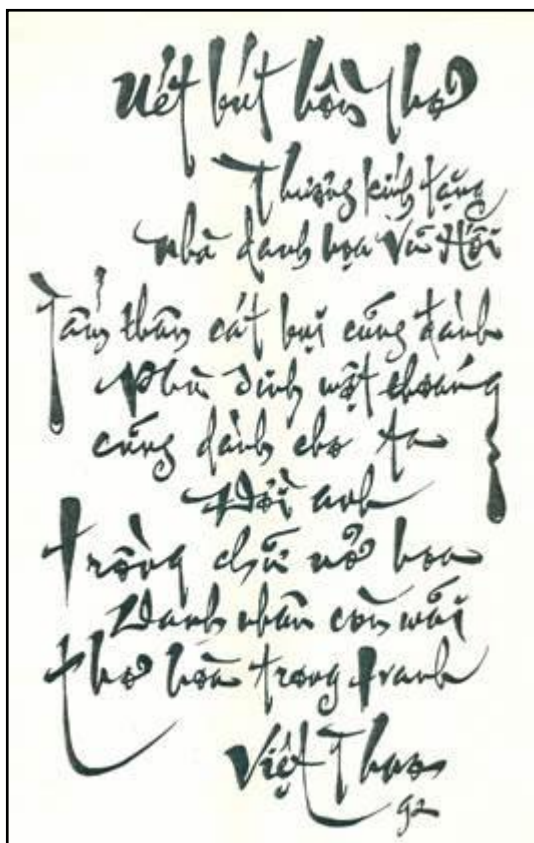 Nét bút hồn thơ
Thương kính tặng
nhà danh họa Vũ Hối
Tấm thân cát bụi cũng đành
Phù dinh một thoáng
cũng dành cho ta
Đời anh
trồng chữ nở hoa
Danh nhân còn mãi
thơ hòa trong tranh
Việt Thao
92